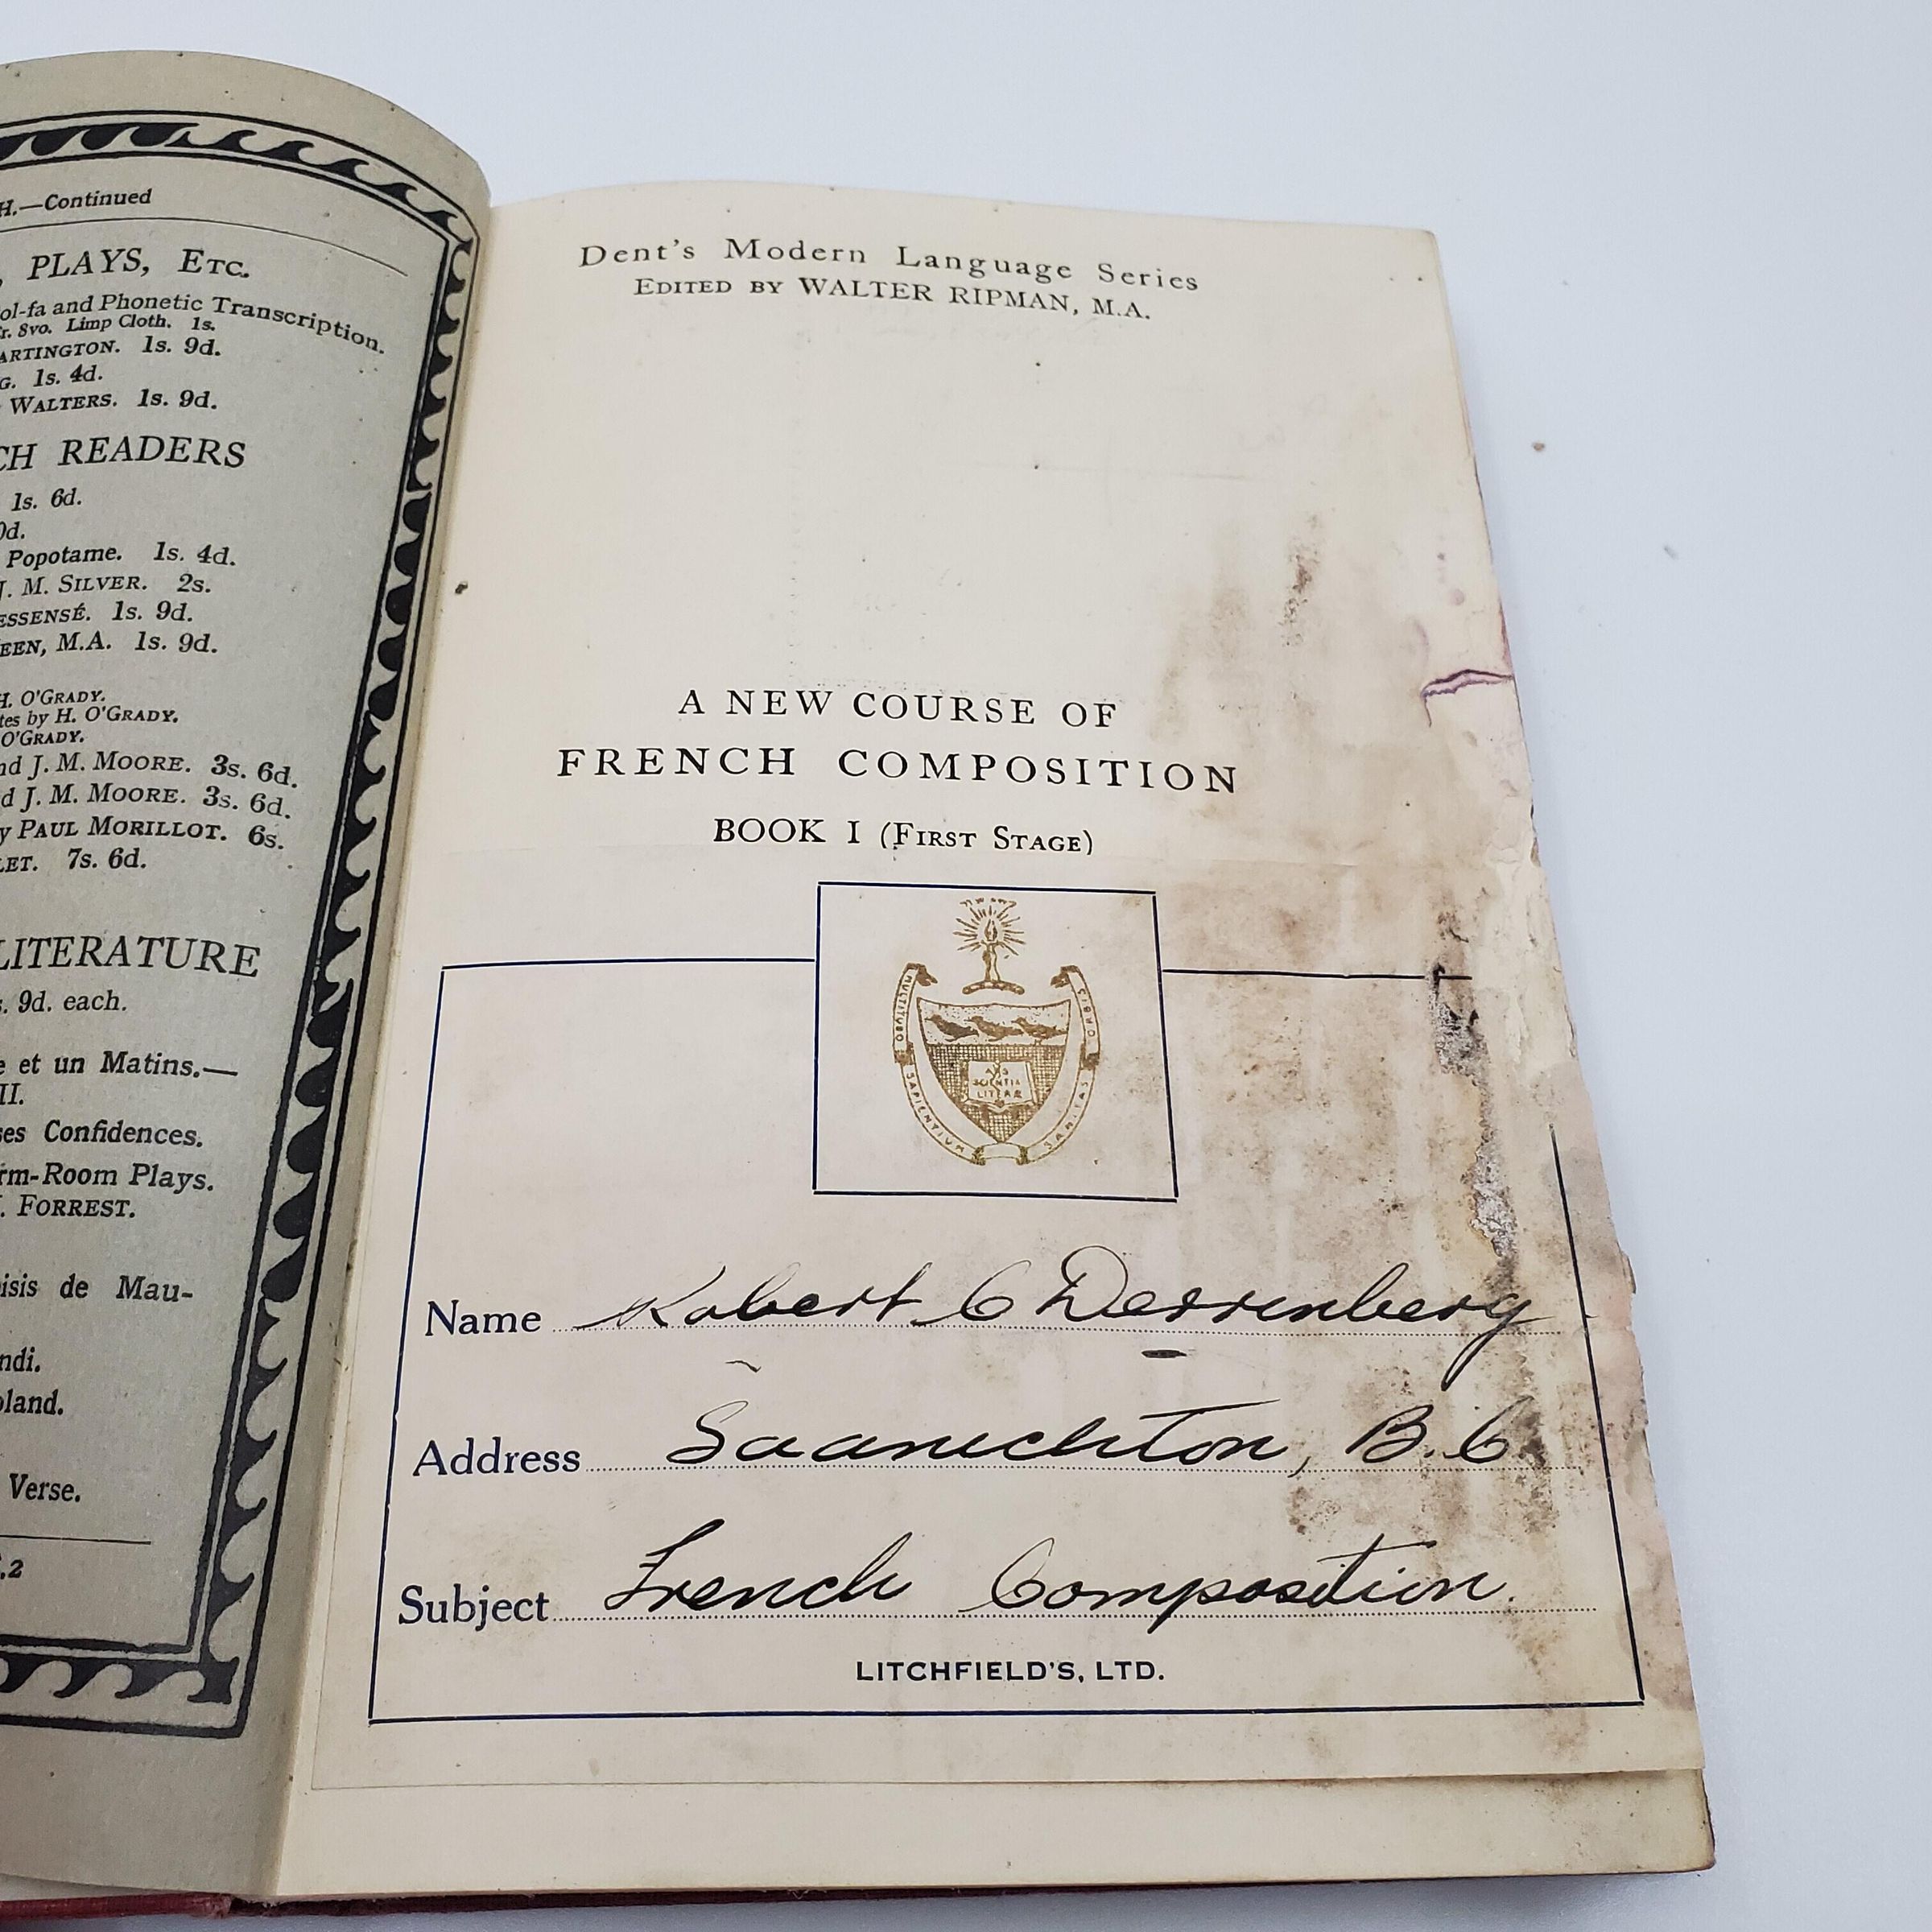 H.—Continued
PLAYS, ETC.
ol-fa and Phonetic Transcription.
Cr. 8vo. Limp Cloth. 1s.
ARTINGTON. 1s. 9d.
G. 1s. 4d.
WALTERS. 1s. 9d.
CH READERS
1s. 6d.
0d.
Popotame. 1s. 4d.
J. M. SILVER. 2s.
ESSENSÉ. 1s. 9d.
EEN, M.A. 1s. 9d.
H. O'GRADY.
tes by H. O'GRADY.
O'GRADY.
nd J. M. MOORE. 3s. 6d.
d J. M. MOORE. 3s. 6d.
y PAUL MORILLOT. 6s.
LET. 7s. 6d.
LITERATURE
s. 9d. each.
e et un Matins.—
II.
ses Confidences.
rm-Room Plays.
. FORREST.
oisis de Mau-
ndi.
oland.
Verse.
.2
Dent's Modern Language Series
EDITED BY WALTER RIPMAN, M.A.
A NEW COURSE OF
FRENCH COMPOSITION
BOOK I (FIRST STAGE)
MULTITUDO SAPIENTIUM SANITAS ORBIS
ARS
SCIENTIA
LITERÆ
Name Robert C Derrenberg
Address Saanichton, B.C
Subject French Composition.
LITCHFIELD'S, LTD.